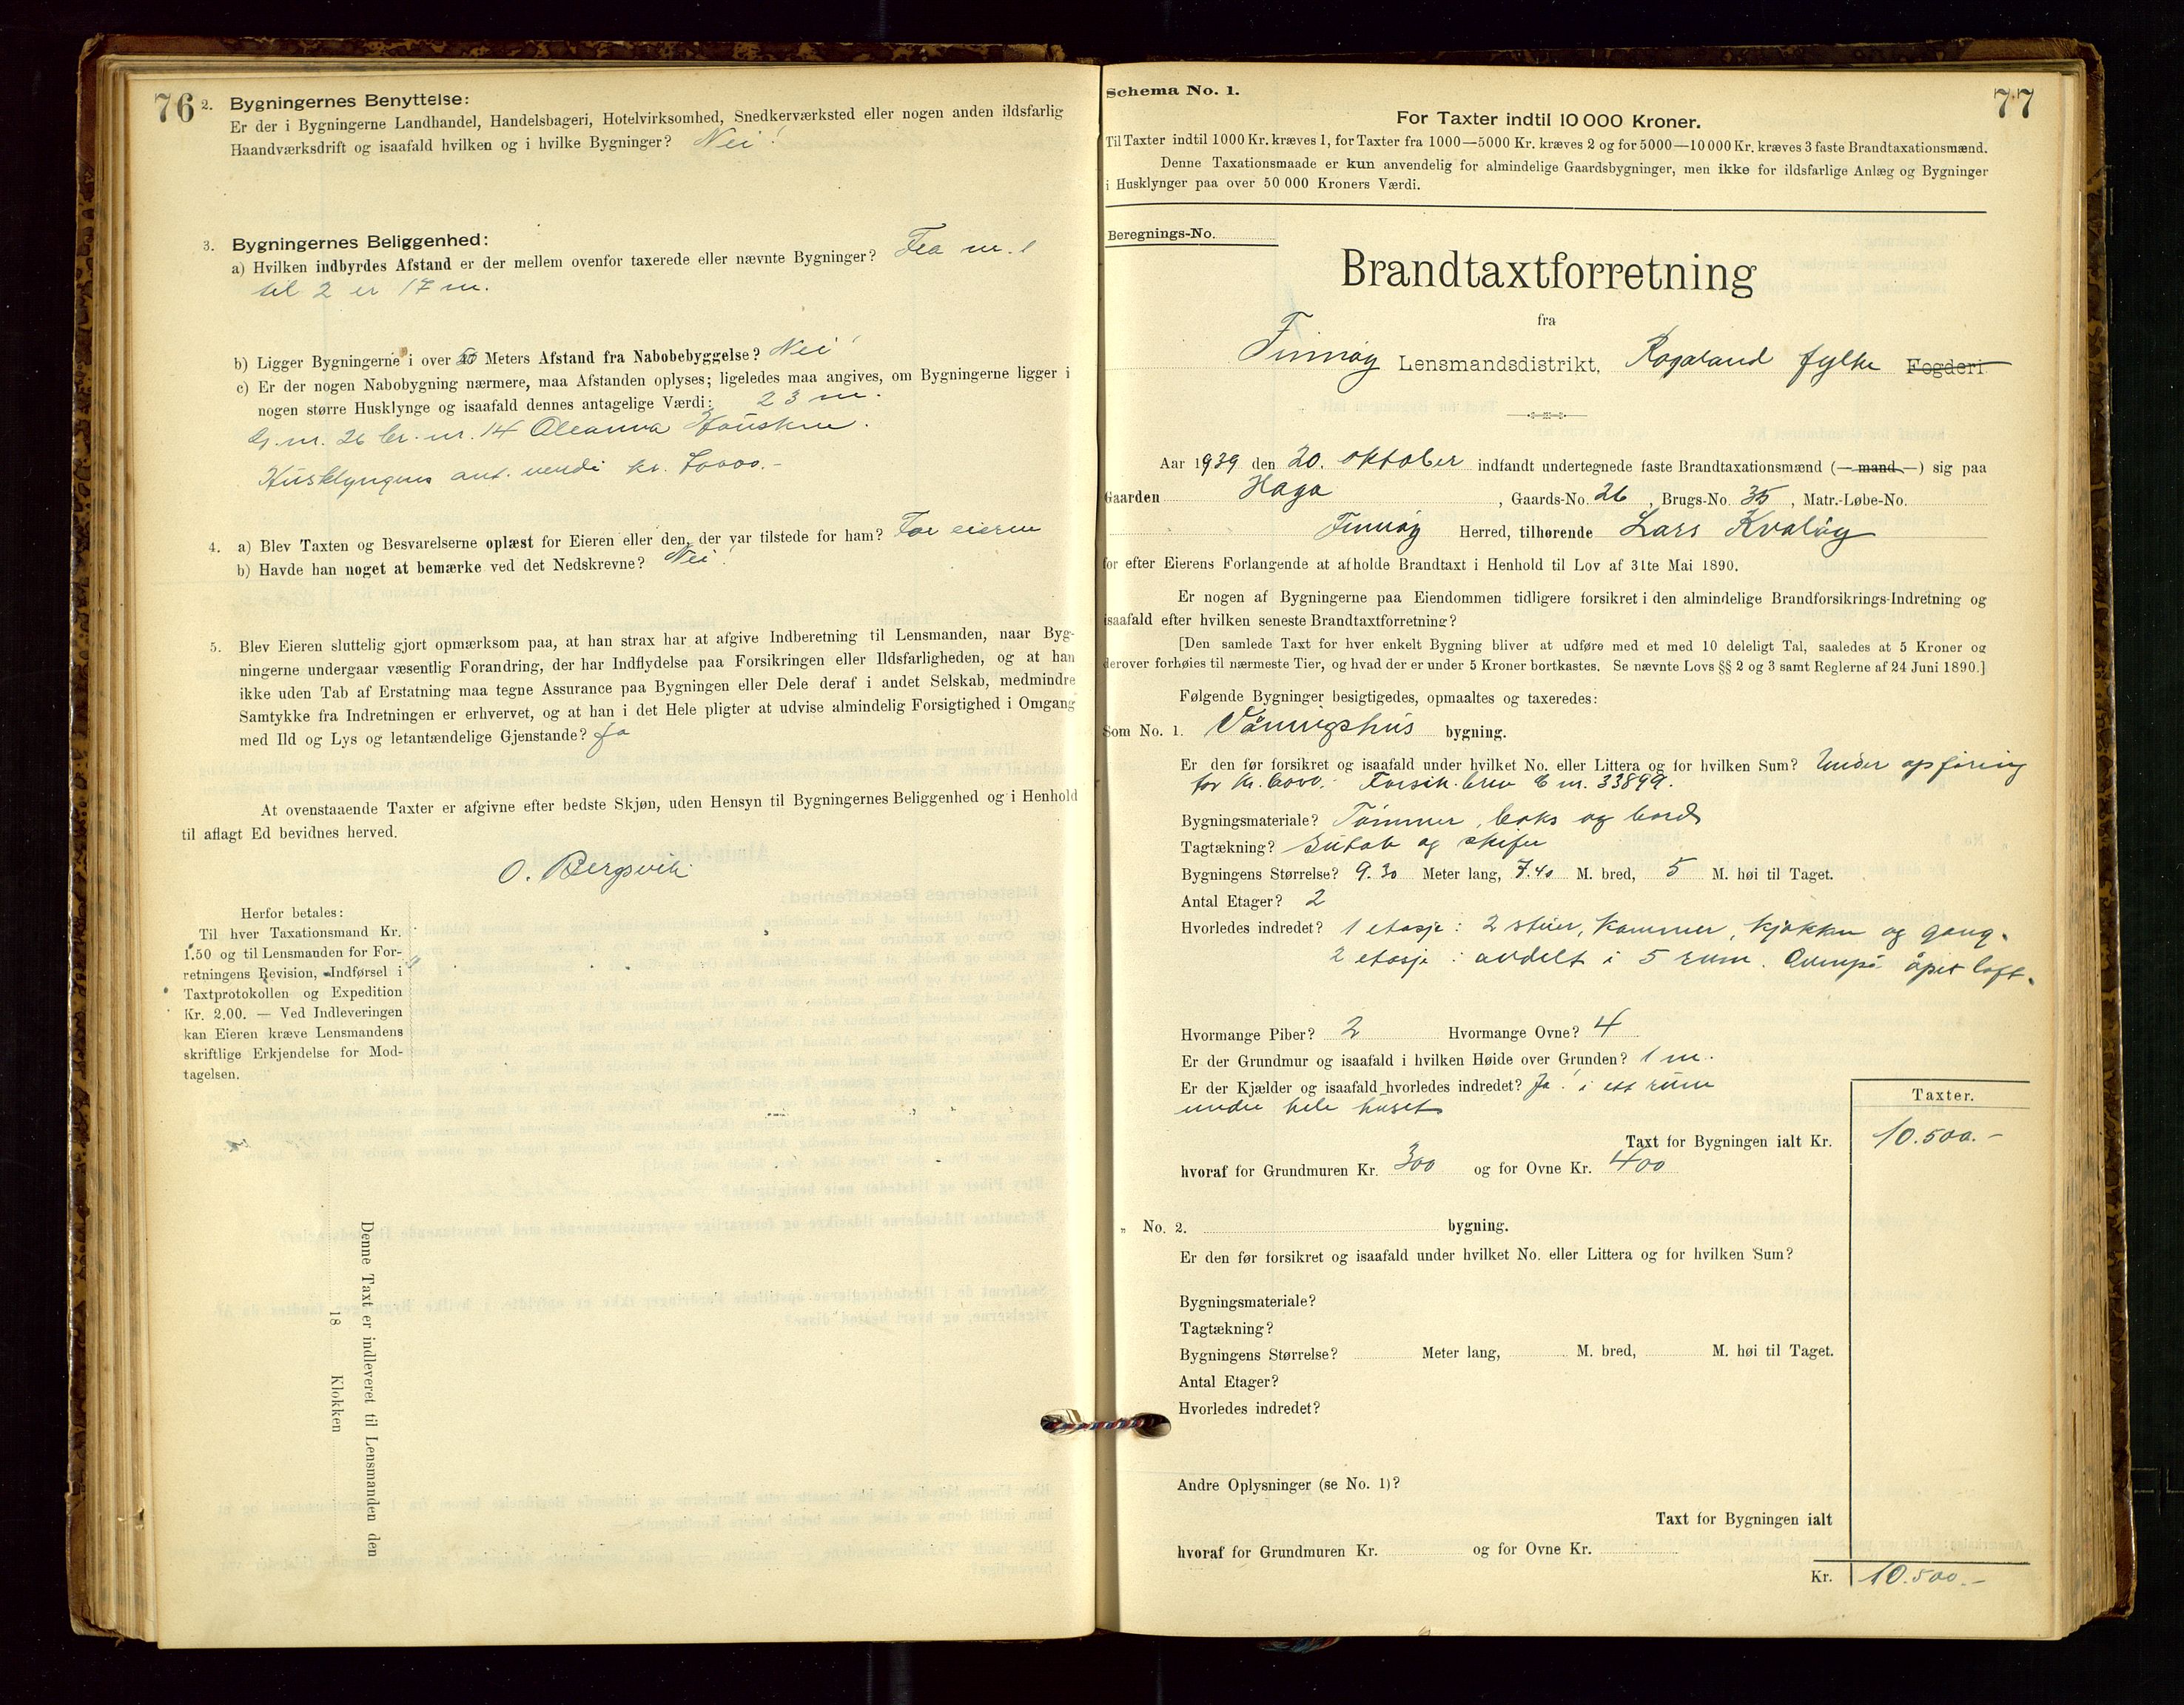 76
2. Bygningernes Benyttelse:
Er der i Bygningerne Landhandel, Handelsbageri, Hotelvirksomhed, Snedkerværksted eller nogen anden ildsfarlig
Haandværksdrift og isaafald hvilken og i hvilke Bygninger? Nei!
3. Bygningernes Beliggenhed:
a) Hvilken indbyrdes Afstand er der mellem ovenfor taxerede eller nævnte Bygninger? Fra nr. 1
til 2 er 17 m.
b) Ligger Bygningerne i over Meters Afstand fra Nabobebyggelse? Nei!
c) Er der nogen Nabobygning nærmere, maa Afstanden oplyses; ligeledes maa angives, om Bygningerne ligger i
nogen større Husklynge og isaafald dennes antagelige Værdi: 23 m.
G. nr. 26 br. nr. 14 Oleanna
Husklyngens ant. verdi kr.
4. a) Blev Taxten og Besvarelserne oplæst for Eieren eller den, der var tilstede for ham? For eieren
b) Havde han noget at bemærke ved det Nedskrevne? Nei!
5. Blev Eieren sluttelig gjort opmærksom paa, at han strax har at afgive Indberetning til Lensmanden, naar Byg-
ningerne undergaar væsentlig Forandring, der har Indflydelse paa Forsikringen eller Ildsfarligheden, og at han
ikke uden Tab af Erstatning maa tegne Assurance paa Bygningen eller Dele deraf i andet Selskab, medmindre
Samtykke fra Indretningen er erhvervet, og at han i det Hele pligter at udvise almindelig Forsigtighed i Omgang
med Ild og Lys og letantændelige Gjenstande? Ja
At ovenstaaende Taxter er afgivne efter bedste Skjøn, uden Hensyn til Bygningernes Beliggenhed og i Henhold
til aflagt Ed bevidnes herved.
O. Bergsvik
Herfor betales:
Til hver Taxationsmand Kr.
1.50 og til Lensmanden for For-
retningens Revision, Indførsel i
Taxtprotokollen og Expedition
Kr. 2.00. — Ved Indleveringen
kan Eieren kræve Lensmandens
skriftlige Erkjendelse for Mod-
tagelsen.
Denne Taxt er indleveret til Lensmanden den
18 Klokken
77
Schema No. 1.
For Taxter indtil 10 000 Kroner.
Til Taxter indtil 1000 Kr. kræves 1, for Taxter fra 1000—5000 Kr. kræves 2 og for 5000—10 000 Kr. kræves 3 faste Brandtaxationsmænd.
Denne Taxationsmaade er kun anvendelig for almindelige Gaardsbygninger, men ikke for ildsfarlige Anlæg og Bygninger
i Husklynger paa over 50 000 Kroners Værdi.
Beregnings-No.
Brandtaxtforretning
fra
Finnøy Lensmandsdistrikt, Rogaland fylke Fogderi
Aar 1939 den 20. oktober indfandt undertegnede faste Brandtaxationsmænd (—mand—) sig paa
Gaarden Haga, Gaards-No. 26, Brugs-No. 35, Matr.-Løbe-No.
Finnøy Herred, tilhørende Lars Kvaløy
for efter Eierens Forlangende at afholde Brandtaxt i Henhold til Lov af 31te Mai 1890.
Er nogen af Bygningerne paa Eiendommen tidligere forsikret i den almindelige Brandforsikrings-Indretning og
isaafald efter hvilken seneste Brandtaxtforretning?
[Den samlede Taxt for hver enkelt Bygning bliver at udføre med et med 10 deleligt Tal, saaledes at 5 Kroner og
derover forhøies til nærmeste Tier, og hvad der er under 5 Kroner bortkastes. Se nævnte Lovs §§ 2 og 3 samt Reglerne af 24 Juni 1890.]
Følgende Bygninger besigtigedes, opmaaltes og taxeredes:
Som No. 1. Våningshus bygning.
Er den før forsikret og isaafald under hvilket No. eller Littera og for hvilken Sum? Under opføring
for kr. 6000.- Forsik. brev nr. 33899.
Bygningsmateriale? Tømmer, boks og bord
Tagtækning? Sutak og skifer
Bygningens Størrelse? 9.30 Meter lang, 7.40 M. bred, 5 M. høi til Taget.
Antal Etager? 2
Hvorledes indredet? 1 etasje: 2 stuer, kammer, kjøkken og gang.
2 etasje: avdelt i 5 rum. Ovenpå åpet loft.
Hvormange Piber? 2 Hvormange Ovne? 4
Er der Grundmur og isaafald i hvilken Høide over Grunden? 1 m.
Er der Kjælder og isaafald hvorledes indredet? Ja! i ett rum
under hele huset
Taxter.
Taxt for Bygningen ialt Kr. 10.500.-
hvoraf for Grundmuren Kr. 300 og for Ovne Kr. 400
„ No. 2. bygning.
Er den før forsikret og isaafald under hvilket No. eller Littera og for hvilken Sum?
Bygningsmateriale?
Tagtækning?
Bygningens Størrelse? Meter lang, M. bred, M. høi til Taget.
Antal Etager?
Hvorledes indredet?
Andre Oplysninger (se No. 1)?
Taxt for Bygningen ialt
hvoraf for Grundmuren Kr. og for Ovne Kr.
Kr. 10.500.-